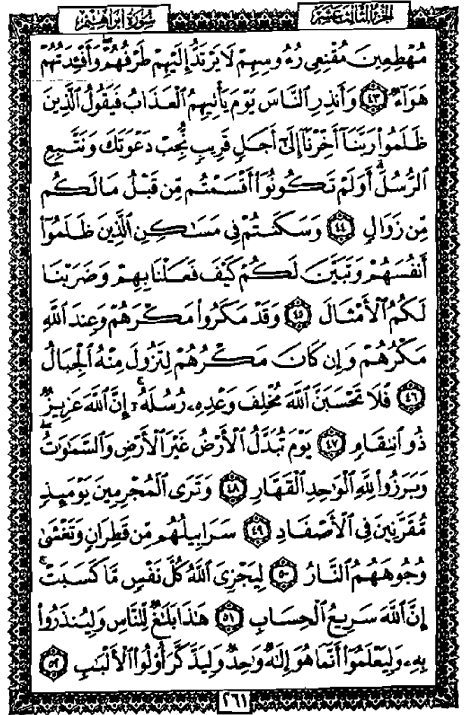 الجزء الثالث عشر سورة إبراهيم
مُهْطِعِينَ مُقْنِعِي رُءُوسِهِمْ لَا يَرْتَدُّ إِلَيْهِمْ طَرْفُهُمْ وَأَفْئِدَتُهُمْ
هَوَاءٌ ٤٣ وَأَنذِرِ النَّاسَ يَوْمَ يَأْتِيهِمُ الْعَذَابُ فَيَقُولُ الَّذِينَ
ظَلَمُوا رَبَّنَا أَخِّرْنَا إِلَىٰ أَجَلٍ قَرِيبٍ نُّجِبْ دَعْوَتَكَ وَنَتَّبِعِ
الرُّسُلَ أَوَلَمْ تَكُونُوا أَقْسَمْتُم مِّن قَبْلُ مَا لَكُم
مِّن زَوَالٍ ٤٤ وَسَكَنتُمْ فِي مَسَاكِنِ الَّذِينَ ظَلَمُوا
أَنفُسَهُمْ وَتَبَيَّنَ لَكُمْ كَيْفَ فَعَلْنَا بِهِمْ وَضَرَبْنَا
لَكُمُ الْأَمْثَالَ ٤٥ وَقَدْ مَكَرُوا مَكْرَهُمْ وَعِندَ اللَّهِ
مَكْرُهُمْ وَإِن كَانَ مَكْرُهُمْ لِتَزُولَ مِنْهُ الْجِبَالُ
٤٦ فَلَا تَحْسَبَنَّ اللَّهَ مُخْلِفَ وَعْدِهِ رُسُلَهُ إِنَّ اللَّهَ عَزِيزٌ
ذُو انتِقَامٍ ٤٧ يَوْمَ تُبَدَّلُ الْأَرْضُ غَيْرَ الْأَرْضِ وَالسَّمَٰوَٰتُ
وَبَرَزُوا لِلَّهِ الْوَاحِدِ الْقَهَّارِ ٤٨ وَتَرَى الْمُجْرِمِينَ يَوْمَئِذٍ
مُّقَرَّنِينَ فِي الْأَصْفَادِ ٤٩ سَرَابِيلُهُم مِّن قَطِرَانٍ وَتَغْشَىٰ
وُجُوهَهُمُ النَّارُ ٥٠ لِيَجْزِيَ اللَّهُ كُلَّ نَفْسٍ مَّا كَسَبَتْ
إِنَّ اللَّهَ سَرِيعُ الْحِسَابِ ٥١ هَٰذَا بَلَٰغٌ لِّلنَّاسِ وَلِيُنذَرُوا
بِهِ وَلِيَعْلَمُوا أَنَّمَا هُوَ إِلَٰهٌ وَٰحِدٌ وَلِيَذَّكَّرَ أُولُوا الْأَلْبَٰبِ ٥٢
٢٦١